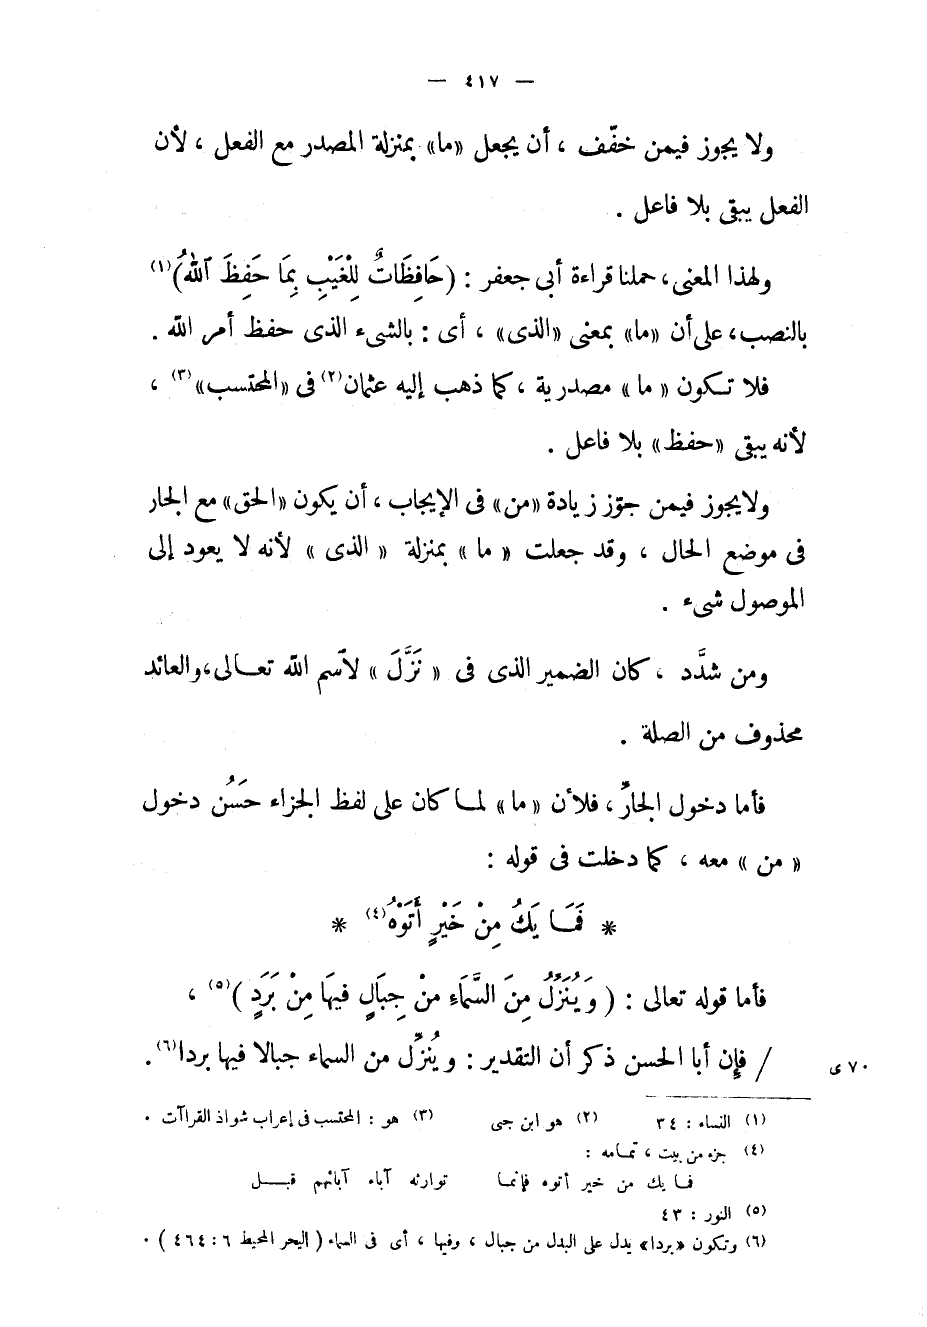 — ٤١٧ —
ولا يجوز فيمن خفّف ، أن يجعل «ما» بمنزلة المصدر مع الفعل ، لأن
الفعل يبقى بلا فاعل .
ولهذا المعنى، حملنا قراءة أبى جعفر : (حَافِظَاتٌ لِلْغَيْبِ بِمَا حَفِظَ ٱللهُ)(١)
بالنصب، على أن «ما» بمعنى «الذى» ، أى : بالشىء الذى حفظ أمر الله .
فلا تكون « ما » مصدرية ، كما ذهب إليه عثمان(٢) فى «المحتسب»(٣) ،
لأنه يبقى «حفظ» بلا فاعل .
ولايجوز فيمن جوّز زيادة «من» فى الإيجاب ، أن يكون «الحق» مع الجار
فى موضع الحال ، وقد جعلت « ما » بمنزلة « الذى » لأنه لا يعود إلى
الموصول شىء .
ومن شدَّد ، كان الضمير الذى فى « نَزَّلَ » لٱسم الله تعالى،والعائد
محذوف من الصلة .
فأما دخول الجارّ ، فلأن « ما » لما كان على لفظ الجزاء حَسُن دخول
« من » معه ، كما دخلت فى قوله :
* فَمَا يَكُ مِنْ خَيْرٍ أَتَوْهُ(٤) *
فأما قوله تعالى : ( وَيُنَزِّلُ مِنَ السَّمَاءِ مِنْ جِبَالٍ فِيهَا مِنْ بَرَدٍ )(٥) ،
/ فإن أبا الحسن ذكر أن التقدير : ويُنزّل من السماء جبالا فيها بردا(٦) .
٧٠ ى
(١) النساء : ٣٤ (٢) هو ابن جى (٣) هو : المحتسب فى إعراب شواذ القراآت .
(٤) جزء من بيت ، تمامه :
فما يك من خير أتوه فإنما توارثه آباء آبائهم قبل
(٥) النور : ٤٣
(٦) وتكون «بردا» يدل على البدل من جبال ، وفيها ، أى فى السماء ( البحر المحيط ٦ : ٤٦٤ ) .